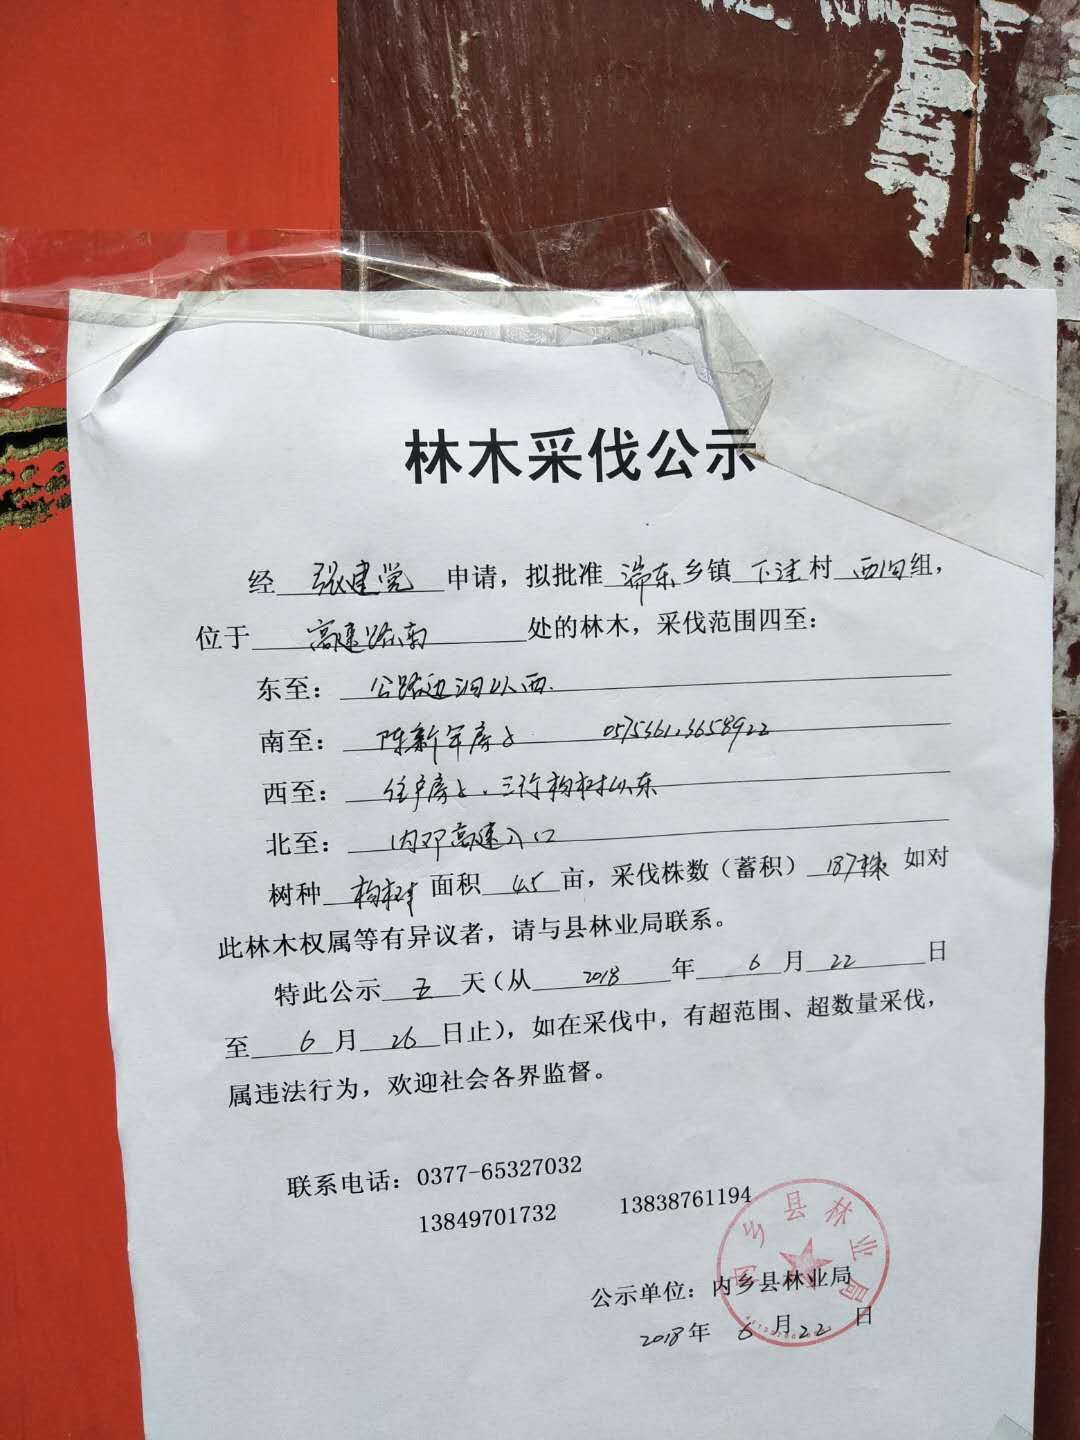 林木采伐公示
经 张建党 申请，拟批准 湍东 乡镇 下洼 村 西旧 组，
位于 高速路南 处的林木，采伐范围四至：
东至： 公路边沟以西.
南至： 陈新年房子
西至： 住户房子、三行构树以东
北至： 内邓高速入口
树种 构树 面积 4.5 亩，采伐株数（蓄积） 187株 如对
此林木权属等有异议者，请与县林业局联系。
特此公示 五 天（从 2018 年 6 月 22 日
至 6 月 26 日止），如在采伐中，有超范围、超数量采伐，
属违法行为，欢迎社会各界监督。
联系电话：0377-65327032
13849701732 13838761194
公示单位：内乡县林业局
2018年 6 月 22 日
内乡县林业局